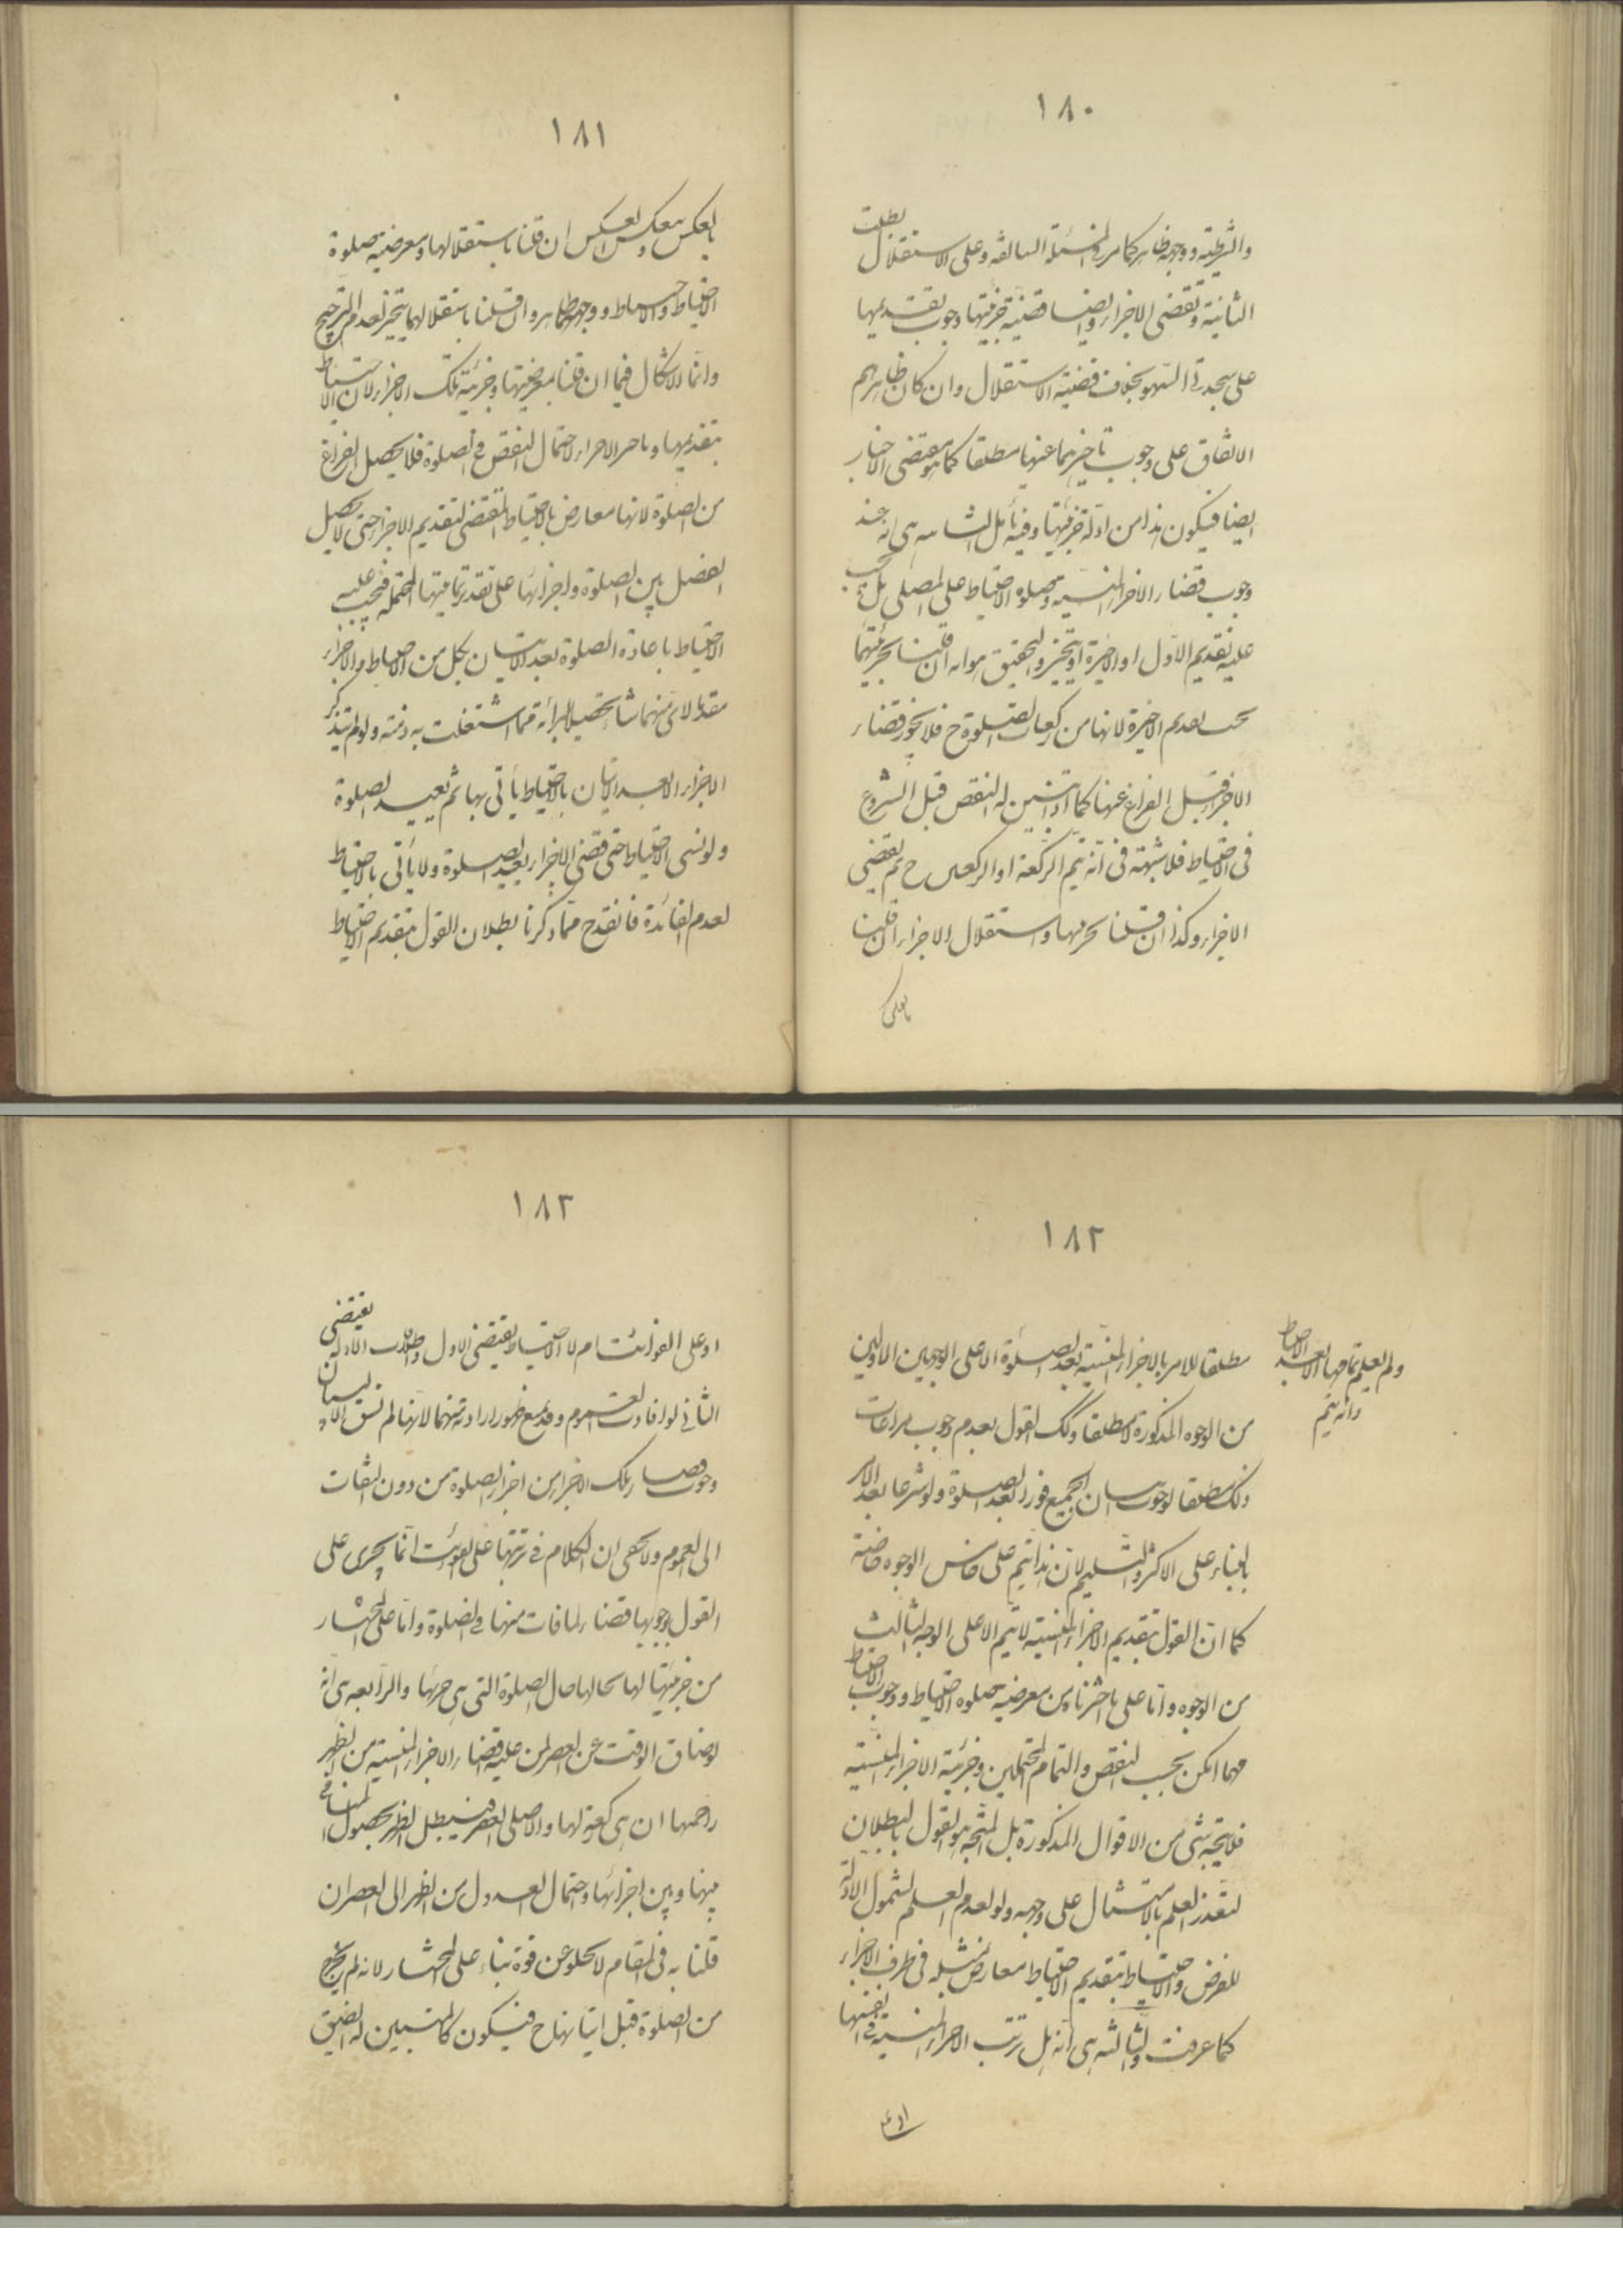 ١٨٠
والشرطية ووجهه ظاهر كما مر فى المسئلة السالفة وعلى الاستقلال بطلت
الثانية وتقضى الاجزاء وايضا قضية جزئيتها وجوب تقديمها
على سجدتى السهو بخلاف قضية الاستقلال وان كان ظاهرهم
الاتفاق على وجوب تاخيرهما عنها مطلقا كما هو مقتضى الاخبار
ايضا فيكون هذا من ادلة جزئيتها وفيه تأمل الثانية هى انه عند
وجوب قضاء الاجزاء المنسية وصلوة الاحتياط على المصلى هل يجب
عليه تقديم الاول او الاخيرة او يتخير والتحقيق هو انه ان قلنا بجزئيتهما
يجب تقديم الاخيرة لانها من ركعات الصلوة ح فلا يجوز قضاء
الاجزاء قبل الفراغ عنها كما اذا تبين له النقص قبل الشروع
فى الاحتياط فلا شبهة فى انه يتم الركعة او الركعتين ح ثم يقضى
الاجزاء وكذا ان قلنا بجزئيتها واستقلال الاجزاء ان قلنا
بالعكس
١٨١
بالعكس ينعكس العكس ان قلنا باستقلالها ومعرضية صلوة
الاحتياط ووجههما ظاهر وان قلنا باستقلالهما يتخير لعدم الترجيح
وانما الاشكال فيما ان قلنا بمعرضيتها وجزئية تلك الاجزاء لان الاحتياط
بتقديمها وتاخير الاجزاء لاحتمال النقص فى الصلوة فلا يحصل الفراغ
من الصلوة لانها معارض بالاحتياط المقتضى لتقديم الاجزاء حتى لا يحصل
الفصل بين الصلوة واجزائها على تقدير تماميتها المحتملة فيجب عليه
الاحتياط باعادة الصلوة بعد الاتيان بكل من الاحتياط والاجزاء
مقدما لاى منهما شاء تحصيلا للبرائة مما اشتغلت به ذمته ولو لم يتذكر
الاجزاء الا بعد الاتيان بالاحتياط يأتى بها ثم يعيد الصلوة
ولو نسى الاحتياط حتى قضى الاجزاء يعيد الصلوة ولا يأتى بالاحتياط
لعدم الفائدة فانقدح مما ذكرنا بطلان القول بتقديم الاحتياط
١٨٢
مطلقا للامر بالاجزاء المنسية بعد الصلوة الا على الوجهين الاولين
من الوجوه المذكورة لا مطلقا وكك القول بعدم وجوب مراعات
ذلك مطلقا لوجوب اتيان الجميع فورا بعد الصلوة ولو شرعا بعد الامر
بالبناء على الاكثر والتسليم لان هذا يتم على خامس الوجوه خاصة
كما ان القول بتقديم الاجزاء المنسية لا يتم الا على الوجه الثالث
من الوجوه واما على ما اخترناه من معرضية صلوة الاحتياط ووجوب الاحتياط
مهما امكن بحسب النقص والتمام المحتملين وجزئية الاجزاء المنسية
فلا يتجه شئ من الاقوال المذكورة بل المتجه هو القول بالبطلان
لتعذر العلم بالامتثال على وجهه ولو لعدم العلم لشمول الادلة
للفرض والاحتياط بتقديم الاحتياط معارض بمثله فى طرف الاجزاء
كما عرفت والثالثة هى انه هل ترتب الاجزاء المنسية فى انفسها
او على
ولم يعلم تمامها الا بعد الاحتياط
وانه يتم
١٨٣
او على الفوائت ام لا الاحتياط يقتضى الاول واطلاق الادلة يقتضى
الثانى لو افادت العموم وقد يمنع ظهور ارادته منها لانها لم تسق الا لبيان
وجوب قضاء تلك الاجزاء من اجزاء الصلوة من دون التفات
الى العموم ولا يخفى ان الكلام فى ترتبها على الفوائت انما يجرى على
القول بوجوبها قضاء لما فات منها فى الصلوة واما على المختار
من جزئيتها لها فحالها حال الصلوة التى هى جزئها والرابعة هى انه
لو ضاق الوقت عن العصر لمن عليه قضاء الاجزاء المنسية من الظهر
زاحمها ان بقى ركعة لها والا صلى العصر فيبطل الظهر بحصول المنافى
بينها وبين اجزائها واحتمال العدول من الظهر الى العصر ان
قلنا به فى المقام لا يخلو عن قوة بناء على المختار لانه لم يخرج
من الصلوة قبل اتيانها ح فيكون كالمتبين له الضيق